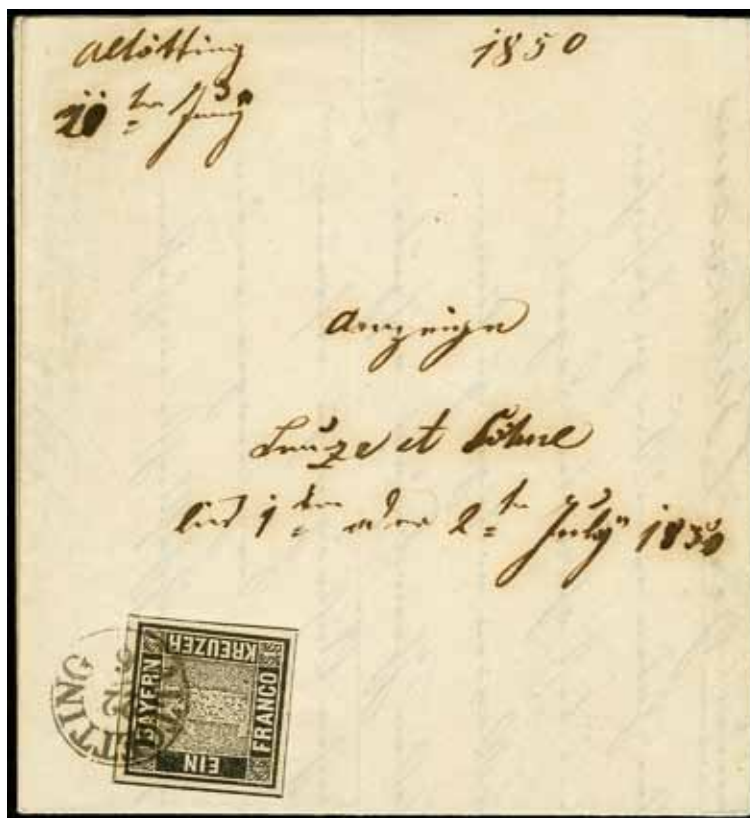 Altötting 1850
20 ten Juny
Anzeige
Lauze et Söhne
bis 1ten oder 2ten July 1850
KREUZER
BAYERN
FRANCO
EIN
TTING